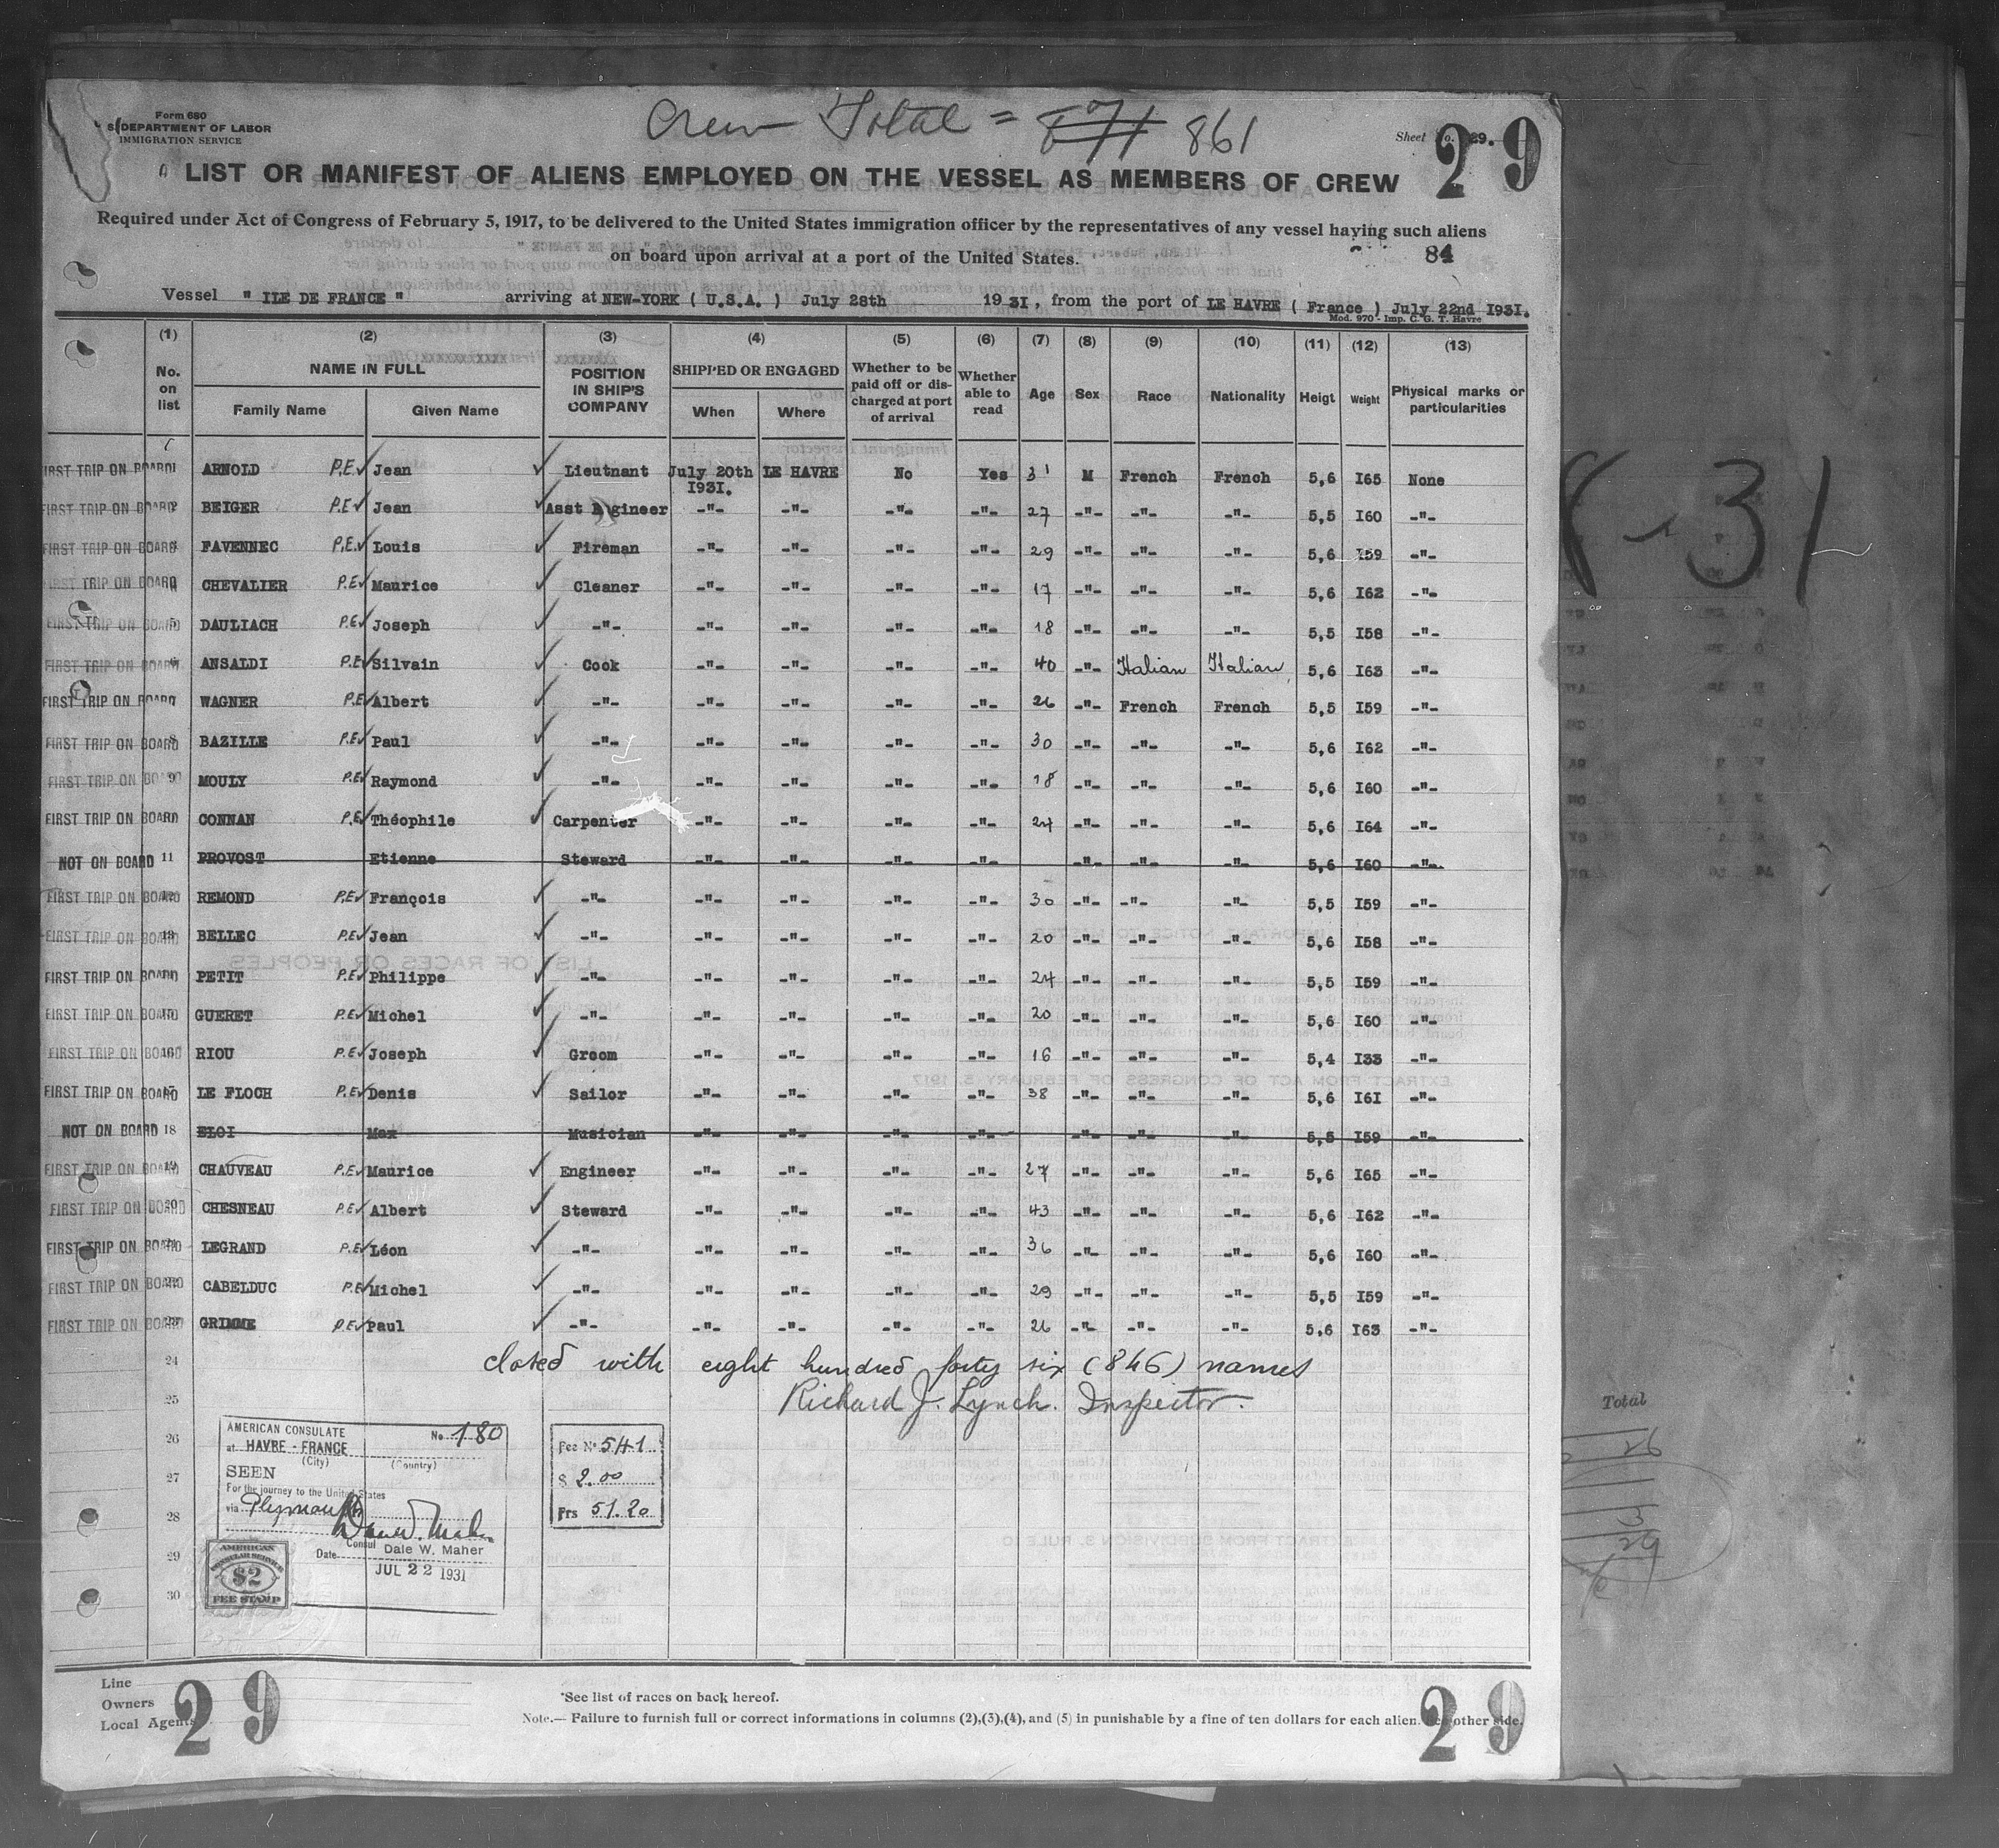 Crew Total = 871 861
Form 680
DEPARTMENT OF LABOR
IMMIGRATION SERVICE
Sheet No. 29.
29
LIST OR MANIFEST OF ALIENS EMPLOYED ON THE VESSEL AS MEMBERS OF CREW
Required under Act of Congress of February 5, 1917, to be delivered to the United States immigration officer by the representatives of any vessel having such aliens
on board upon arrival at a port of the United States.
84
Vessel " ILE DE FRANCE " arriving at NEW-YORK ( U.S.A. ) July 28th 19 3I, from the port of LE HAVRE ( France ) July 22nd 193I.
Mod. 970 - Imp. C. G. T. Havre
(1) (2) (3) (4) (5) (6) (7) (8) (9) (10) (11) (12) (13)
No. on list NAME IN FULL Family Name Given Name POSITION IN SHIP'S COMPANY SHIPPED OR ENGAGED When Where Whether to be paid off or discharged at port of arrival Whether able to read Age Sex Race Nationality Heigt Weight Physical marks or particularities
FIRST TRIP ON BOARD 1 ARNOLD P.E. Jean Lieutnant July 20th 193I. LE HAVRE No Yes 31 M French French 5,6 I65 None
FIRST TRIP ON BOARD 2 BEIGER P.E. Jean Asst Engineer -"- -"- -"- -"- 27 -"- -"- -"- 5,5 I60 -"-
FIRST TRIP ON BOARD FAVENNEC P.E. Louis Fireman -"- -"- -"- -"- 29 -"- -"- -"- 5,6 I59 -"-
FIRST TRIP ON BOARD CHEVALIER P.E. Maurice Cleaner -"- -"- -"- -"- 17 -"- -"- -"- 5,6 I62 -"-
FIRST TRIP ON BOARD 5 DAULIACH P.E. Joseph -"- -"- -"- -"- -"- 18 -"- -"- -"- 5,5 I58 -"-
FIRST TRIP ON BOARD ANSALDI P.E. Silvain Cook -"- -"- -"- -"- 40 -"- Italian Italian 5,6 I63 -"-
FIRST TRIP ON BOARD 7 WAGNER P.E. Albert -"- -"- -"- -"- -"- 26 -"- French French 5,5 I59 -"-
FIRST TRIP ON BOARD 8 BAZILLE P.E. Paul -"- -"- -"- -"- -"- 30 -"- -"- -"- 5,6 I62 -"-
FIRST TRIP ON BOARD 9 MOULY P.E. Raymond -"- -"- -"- -"- -"- 18 -"- -"- -"- 5,6 I60 -"-
FIRST TRIP ON BOARD CONNAN P.E. Théophile Carpenter -"- -"- -"- -"- 24 -"- -"- -"- 5,6 I64 -"-
NOT ON BOARD 11 PROVOST Etienne Steward -"- -"- -"- -"- -"- -"- -"- 5,6 I60 -"-
FIRST TRIP ON BOARD 12 REMOND P.E. François -"- -"- -"- -"- -"- 30 -"- -"- -"- 5,5 I59 -"-
FIRST TRIP ON BOARD 13 BELLEC P.E. Jean -"- -"- -"- -"- -"- 20 -"- -"- -"- 5,6 I58 -"-
FIRST TRIP ON BOARD PETIT P.E. Philippe -"- -"- -"- -"- -"- 24 -"- -"- -"- 5,5 I59 -"-
FIRST TRIP ON BOARD 15 GUERET P.E. Michel -"- -"- -"- -"- -"- 20 -"- -"- -"- 5,6 I60 -"-
FIRST TRIP ON BOARD 16 RIOU P.E. Joseph Groom -"- -"- -"- -"- 16 -"- -"- -"- 5,4 I33 -"-
FIRST TRIP ON BOARD 17 LE FLOCH P.E. Denis Sailor -"- -"- -"- -"- 38 -"- -"- -"- 5,6 I6I -"-
NOT ON BOARD 18 ELOI Max Musician -"- -"- -"- -"- -"- -"- -"- 5,5 I59 -"-
FIRST TRIP ON BOARD 19 CHAUVEAU P.E. Maurice Engineer -"- -"- -"- -"- 27 -"- -"- -"- 5,6 I65 -"-
FIRST TRIP ON BOARD 20 CHESNEAU P.E. Albert Steward -"- -"- -"- -"- 43 -"- -"- -"- 5,6 I62 -"-
FIRST TRIP ON BOARD 21 LEGRAND P.E. Léon -"- -"- -"- -"- -"- 36 -"- -"- -"- 5,6 I60 -"-
FIRST TRIP ON BOARD 22 CABELDUC P.E. Michel -"- -"- -"- -"- -"- 29 -"- -"- -"- 5,5 I59 -"-
FIRST TRIP ON BOARD 23 GRIMME P.E. Paul -"- -"- -"- -"- -"- 26 -"- -"- -"- 5,6 I63 -"-
24 closed with eight hundred forty six (846) names
25 Richard J. Lynch. Inspector.
26
27
28
29
30
AMERICAN CONSULATE No 180
at HAVRE - FRANCE
(City) (Country)
SEEN
For the journey to the United States
via Plymouth
Consul Dale W. Maher
Date JUL 22 1931
AMERICAN CONSULAR SERVICE $2 FEE STAMP
Fee No 541
$ 2.00
Frs 51.20
Line
Owners
Local Agents
29
*See list of races on back hereof.
Note.— Failure to furnish full or correct informations in columns (2),(3),(4), and (5) in punishable by a fine of ten dollars for each alien. See other side.
29
8-31
Total
26